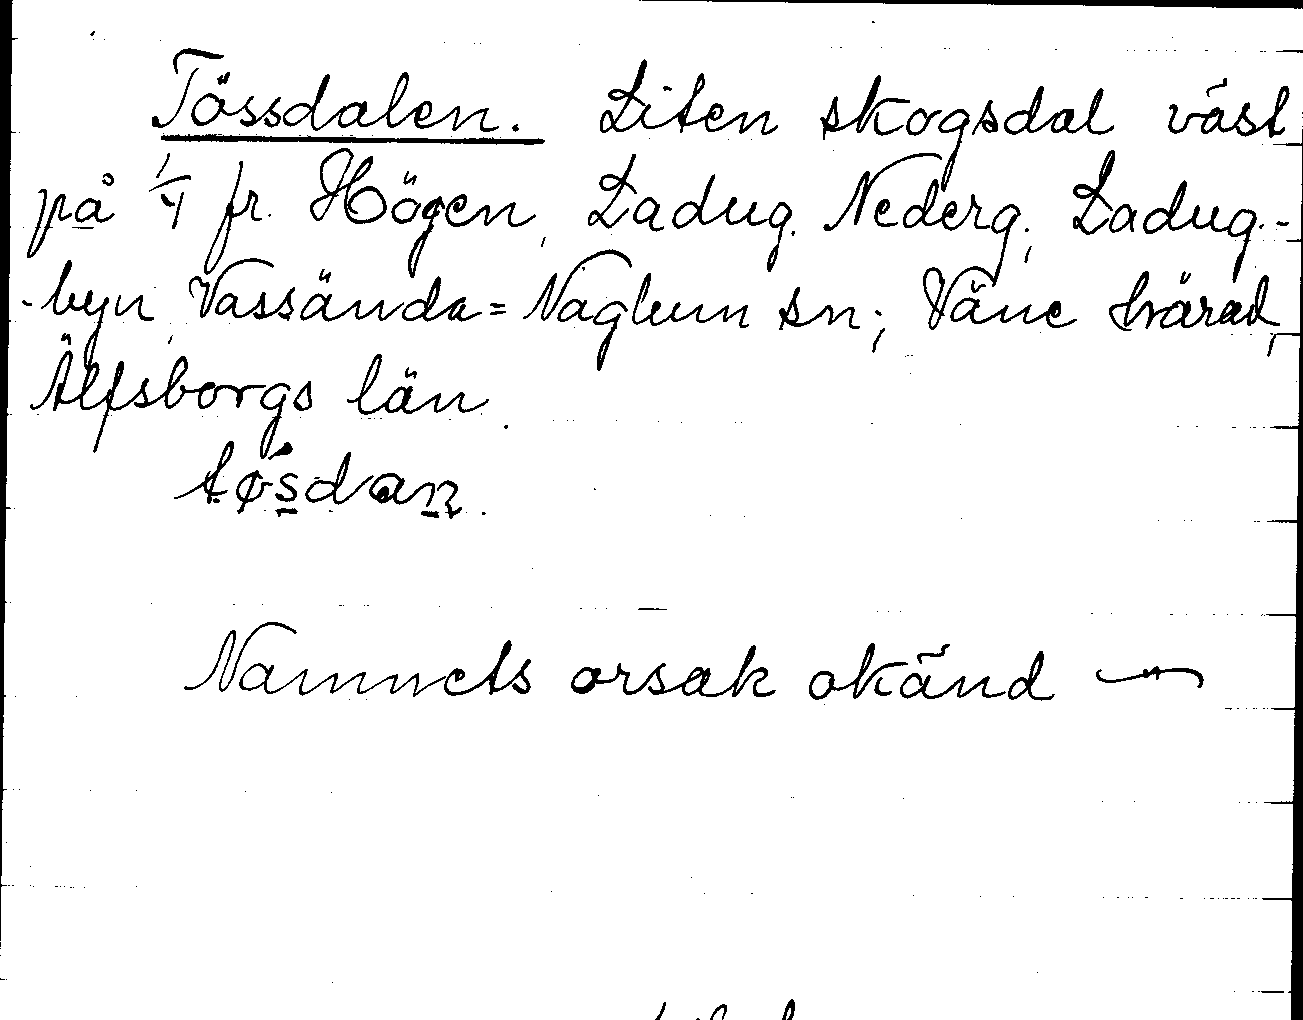 Tössdalen. Liten skogsdal väst
på 1/4 fr. Högen, Ladug. Nederg., Ladug.-
-byn, Vassända=Naglum sn; Väne härad,
Älfsborgs län.
tøsdan.
Namnets orsak okänd —